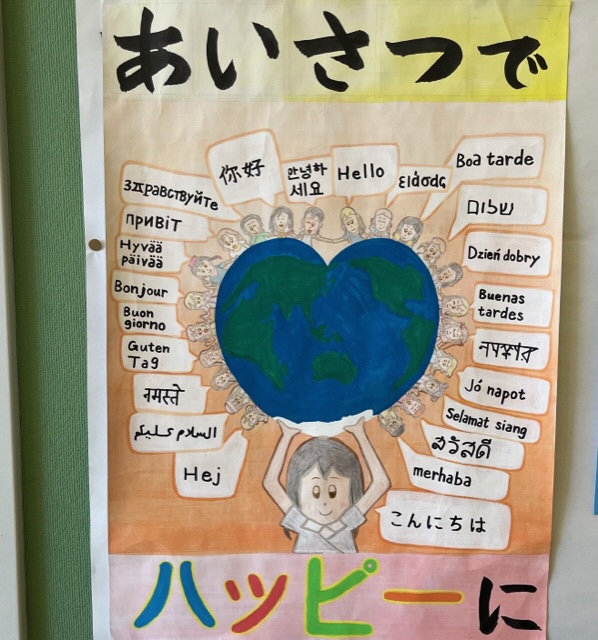 あいさつで
你好
안녕하
세요
Hello
ειάσας
Boa tarde
Здравствуйте
שלום
привіт
Hyvää
päivää
Dzień dobry
Bonjour
Buenas
tardes
Buon
giorno
Guten
Tag
নমস্কার
नमस्ते
Jó napot
السلام عليكم
Selamat siang
สวัสดี
Hej
merhaba
こんにちは
ハッピーに